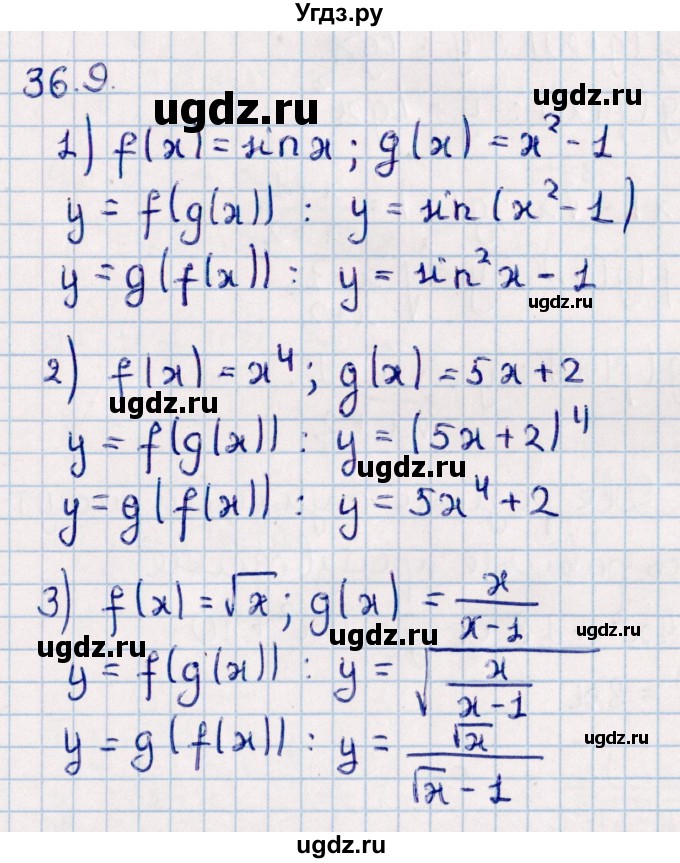 Угдз.ру
36.9.
ugdz.ru
ugdz.ru
1) f(x) = sin x; g(x) = x² - 1
y = f(g(x)) : y = sin(x² - 1)
y = g(f(x)) : y = sin²x - 1
ugdz.ru
ugdz.ru
2) f(x) = x⁴; g(x) = 5x + 2
ugdz.ru
y = f(g(x)) : y = (5x + 2)⁴
ugdz.ru
y = g(f(x)) : y = 5x⁴ + 2
3) f(x) = √x; g(x) = x/(x - 1)
ugdz.ru
ugdz.ru
y = f(g(x)) : y = √(x/(x - 1))
y = g(f(x)) : y = √x/(√x - 1)
ugdz.ru
ugdz.ru
ugdz.ru